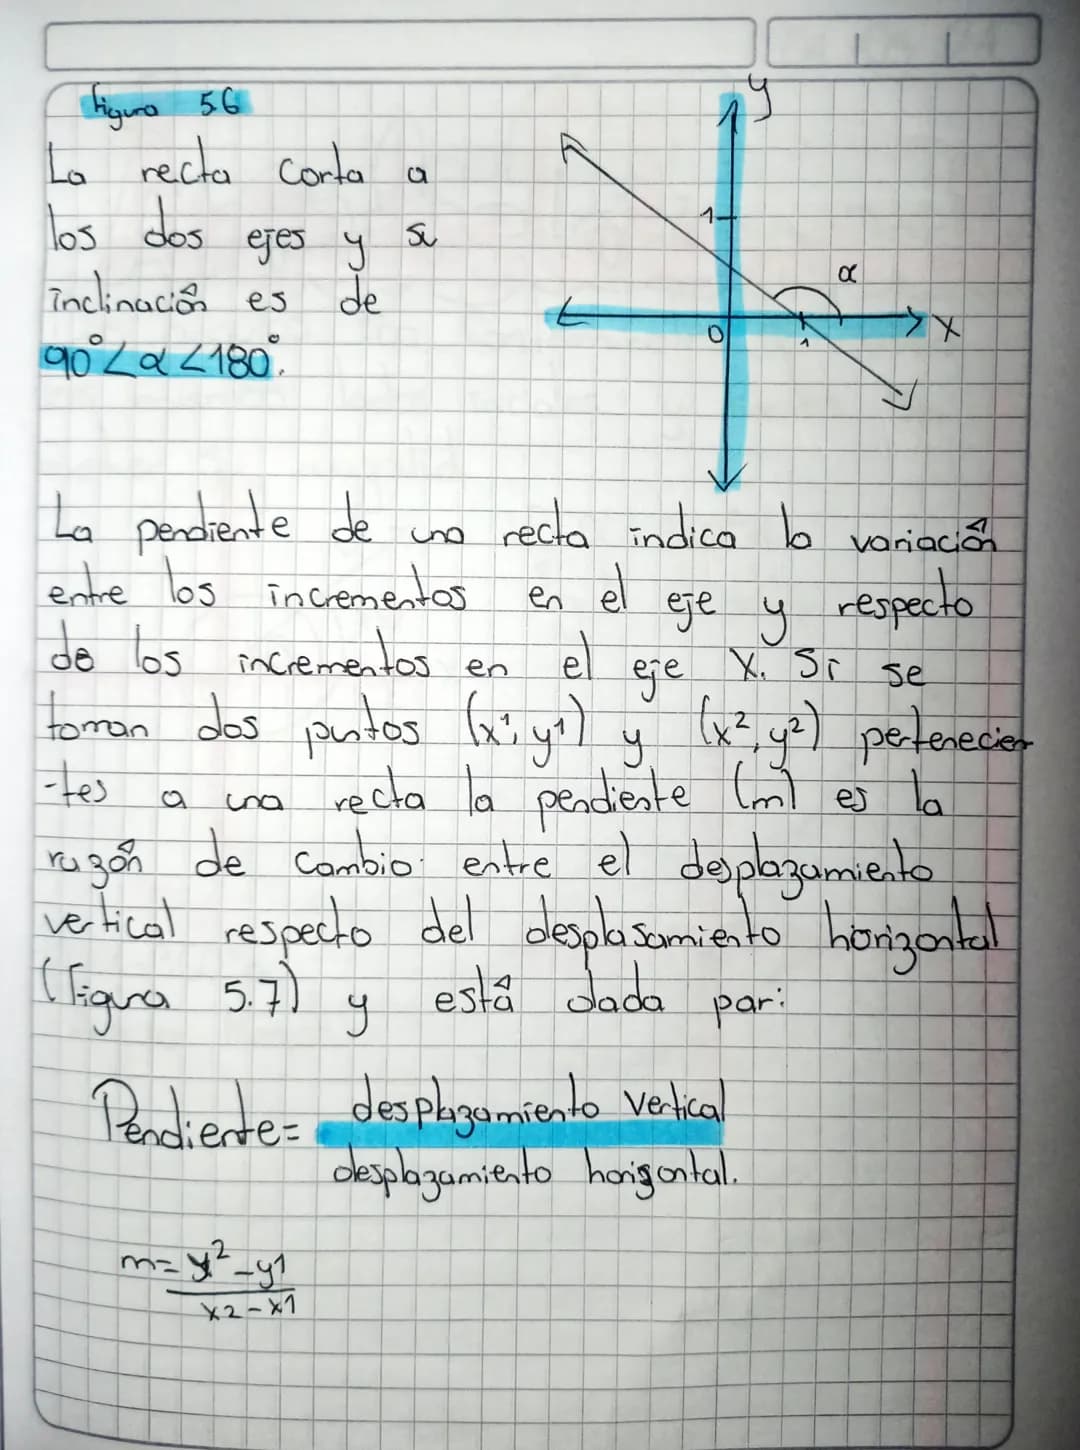 Figura 5.6
La recta corta a
los dos ejes y su
inclinación es de
90°<α<180°.
y
1
α
0
1
x
La pendiente de una recta indica la variación
entre los incrementos en el eje y respecto
de los incrementos en el eje X. Si se
toman dos puntos (x¹, y¹) y (x², y²) pertenecien
-tes a una recta la pendiente (m) es la
razón de cambio entre el desplazamiento
vertical respecto del desplasamiento horizontal
(Figura 5.7) y está dada par:
Pendiente= desplazamiento vertical
desplazamiento horizontal.
m= y²-y1
x2-x1